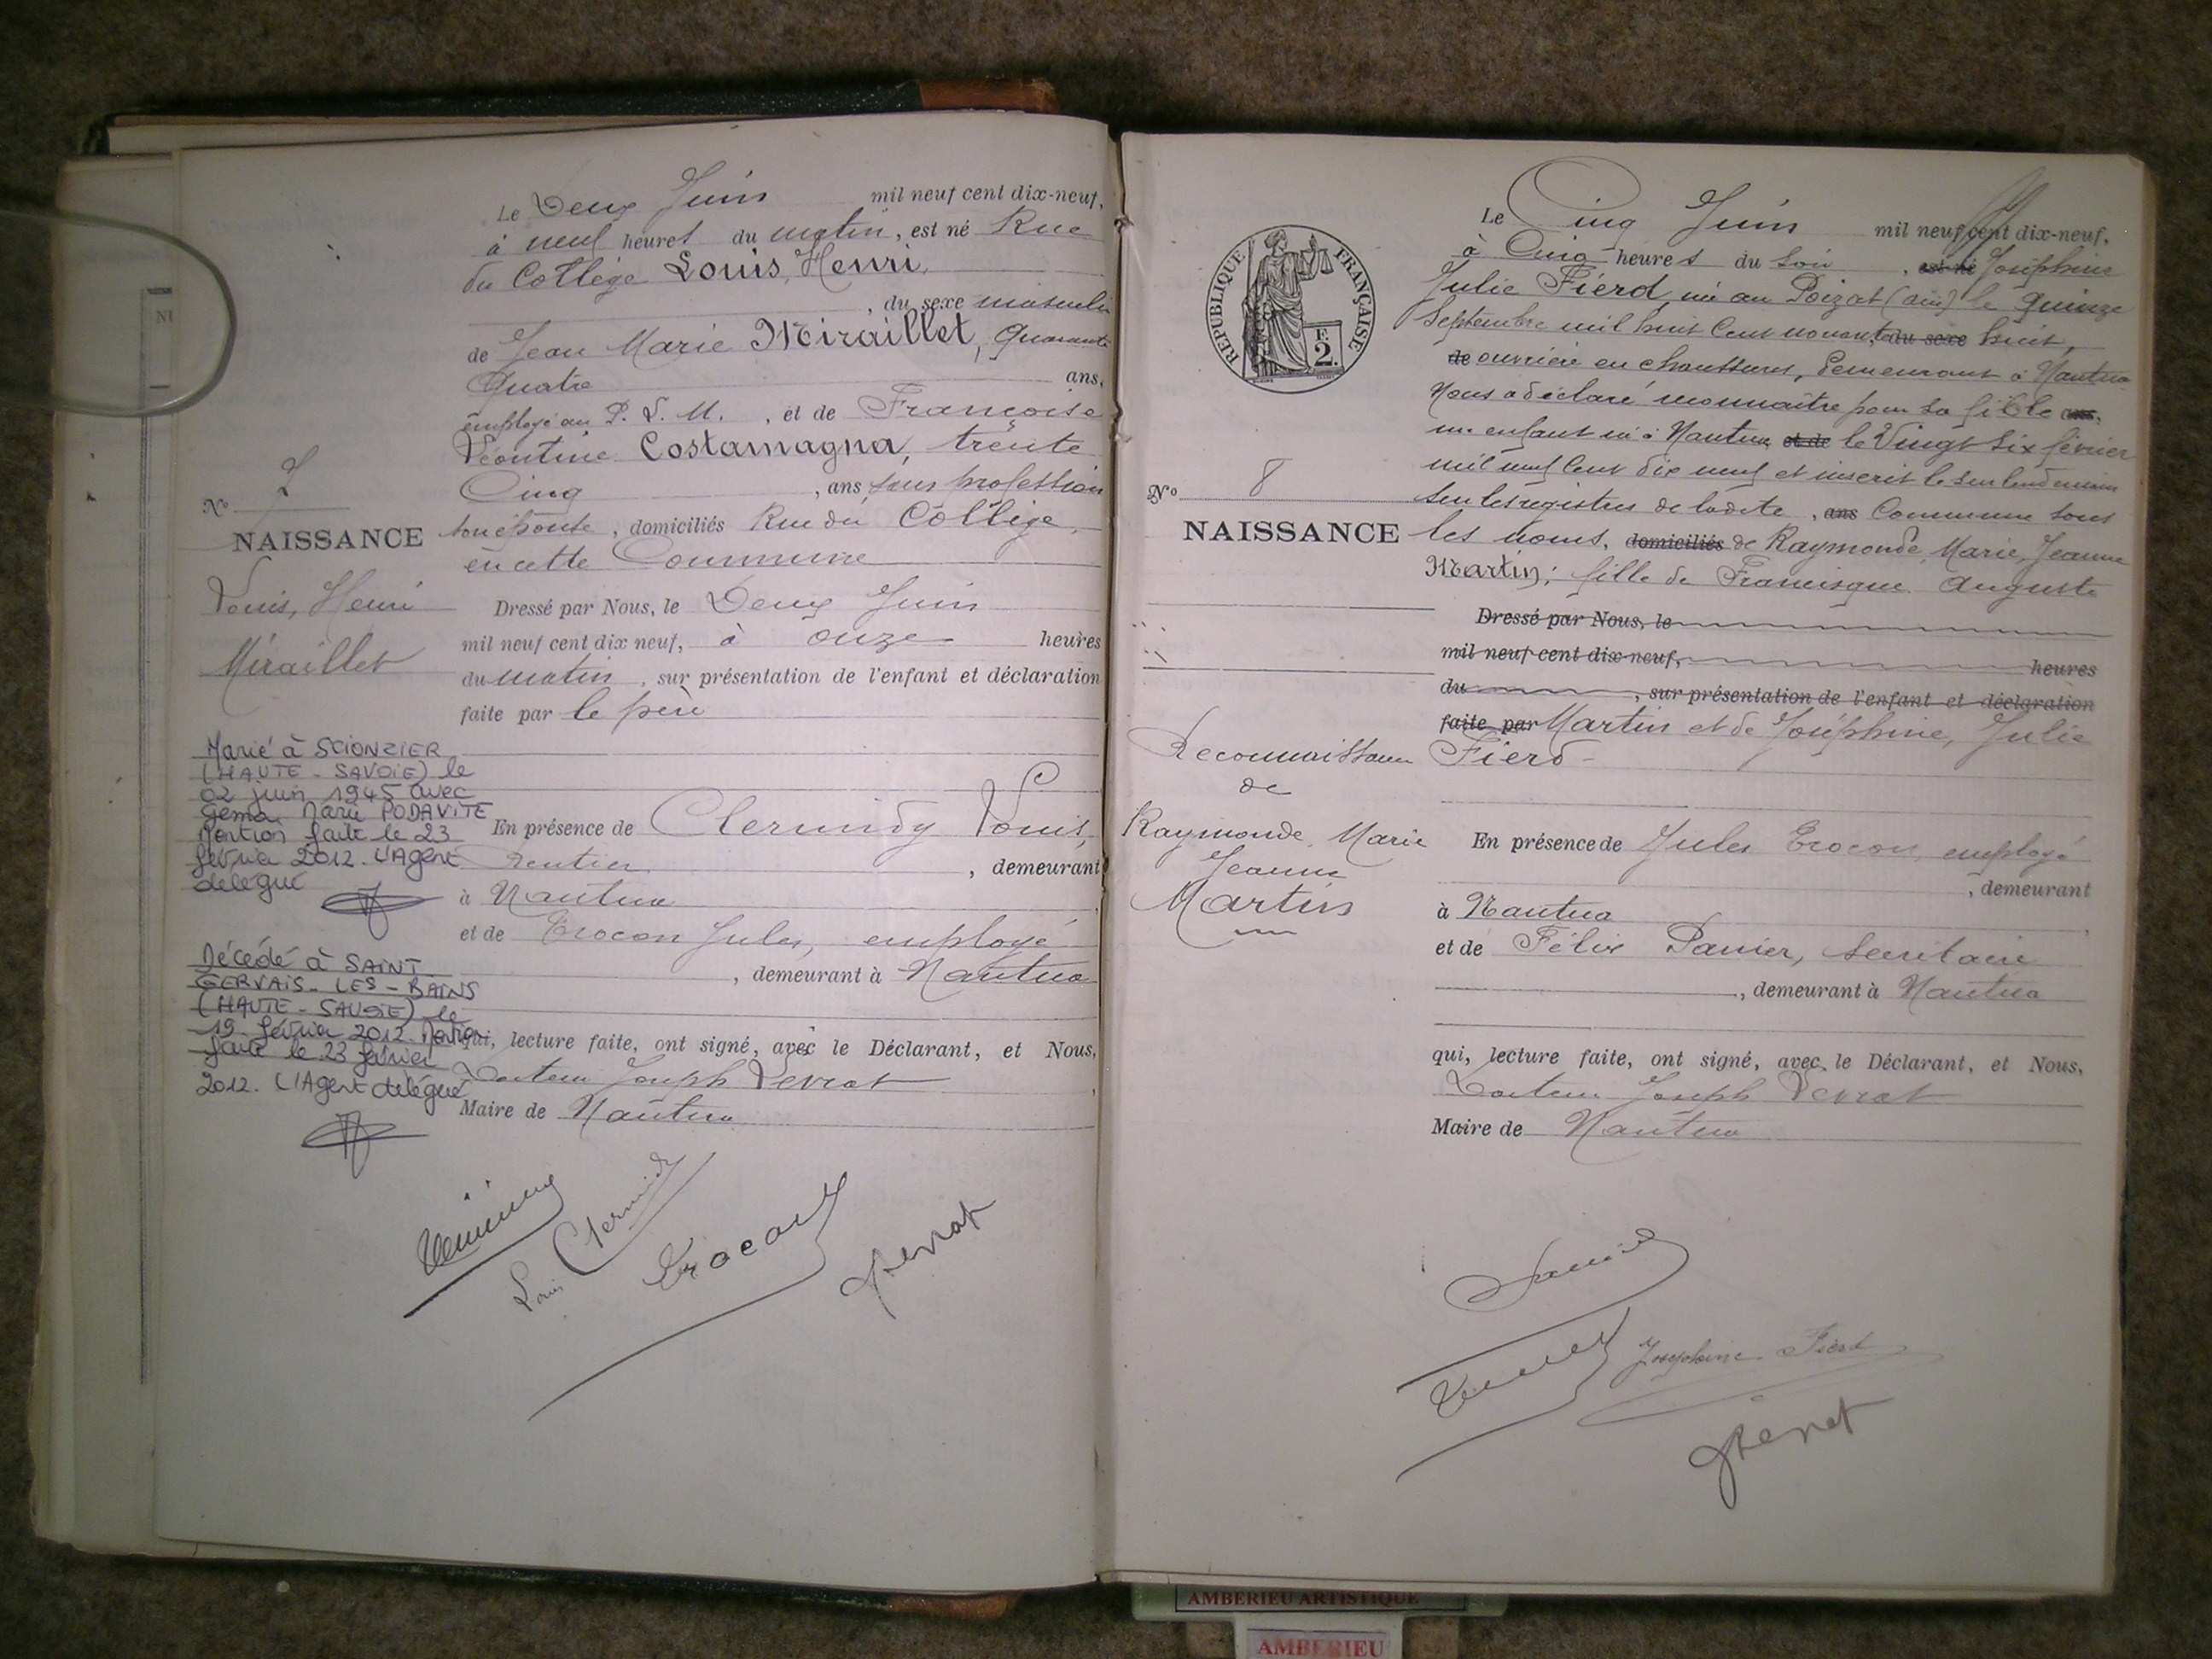 Le Deux Juin mil neuf cent dix-neuf,
à neuf heures du matin, est né Rue
du Collège Louis, Henri,
, du sexe masculin
de Jean Marie Miraillet, Quarante
Quatre ans,
employé au P. L. M. , et de Françoise
Léontine Costamagna, trente
Cinq , ans, sans profession
son épouse, domiciliés Rue du Collège,
en cette Commune
No 7
NAISSANCE
Louis, Henri
Miraillet
Dressé par Nous, le Deux Juin
mil neuf cent dix neuf, à onze heures
du matin, sur présentation de l'enfant et déclaration
faite par le père
Marié à SCIONZIER
(HAUTE-SAVOIE) le
02 juin 1945 avec
Gema Marie PODAVITE
Mention faite le 23
février 2012. L'Agent
délégué
En présence de Clermidy Louis,
rentier , demeurant
à Nantua
et de Trocon Jules, employé
, demeurant à Nantua
Décédé à SAINT
GERVAIS-LES-BAINS
(HAUTE-SAVOIE) le
19 février 2012. Mention
faite le 23 février
2012. L'Agent délégué
qui, lecture faite, ont signé, avec le Déclarant, et Nous,
Docteur Joseph Levrat
Maire de Nantua
Louis Clermidy
Trocon
No 8
NAISSANCE
Reconnaissance
de
Raymonde, Marie
Jeanne
Martin
RÉPUBLIQUE FRANÇAISE
F.
2.
Le Cinq Juin mil neuf cent dix-neuf,
à Cinq heures du soir , est né Joséphine
Julie Fierd, née au Poizat (Ain) le quinze
Septembre mil huit cent nonante du sexe huit,
de ouvrière en chaussures, demeurant à Nantua
Nous a déclaré reconnaître pour sa fille ans,
un enfant né à Nantua et de le Vingt six février
mil neuf cent dix neuf et inscrit le surlendemain
sur les registres de ladite , ans Commune sous
les noms, domiciliés de Raymonde, Marie, Jeanne
Martin; fille de Francisque Auguste
Dressé par Nous, le
mil neuf cent dix-neuf, heures
du , sur présentation de l'enfant et déclaration
faite par Martin et de Joséphine, Julie
Fierd
En présence de Jules Trocon, employé
, demeurant
à Nantua
et de Félix Panier, secrétaire
, demeurant à Nantua
qui, lecture faite, ont signé, avec le Déclarant, et Nous,
Docteur Joseph Levrat
Maire de Nantua
Joséphine Fierd
AMBERIEU ARTISTIQUE
AMBERIEU